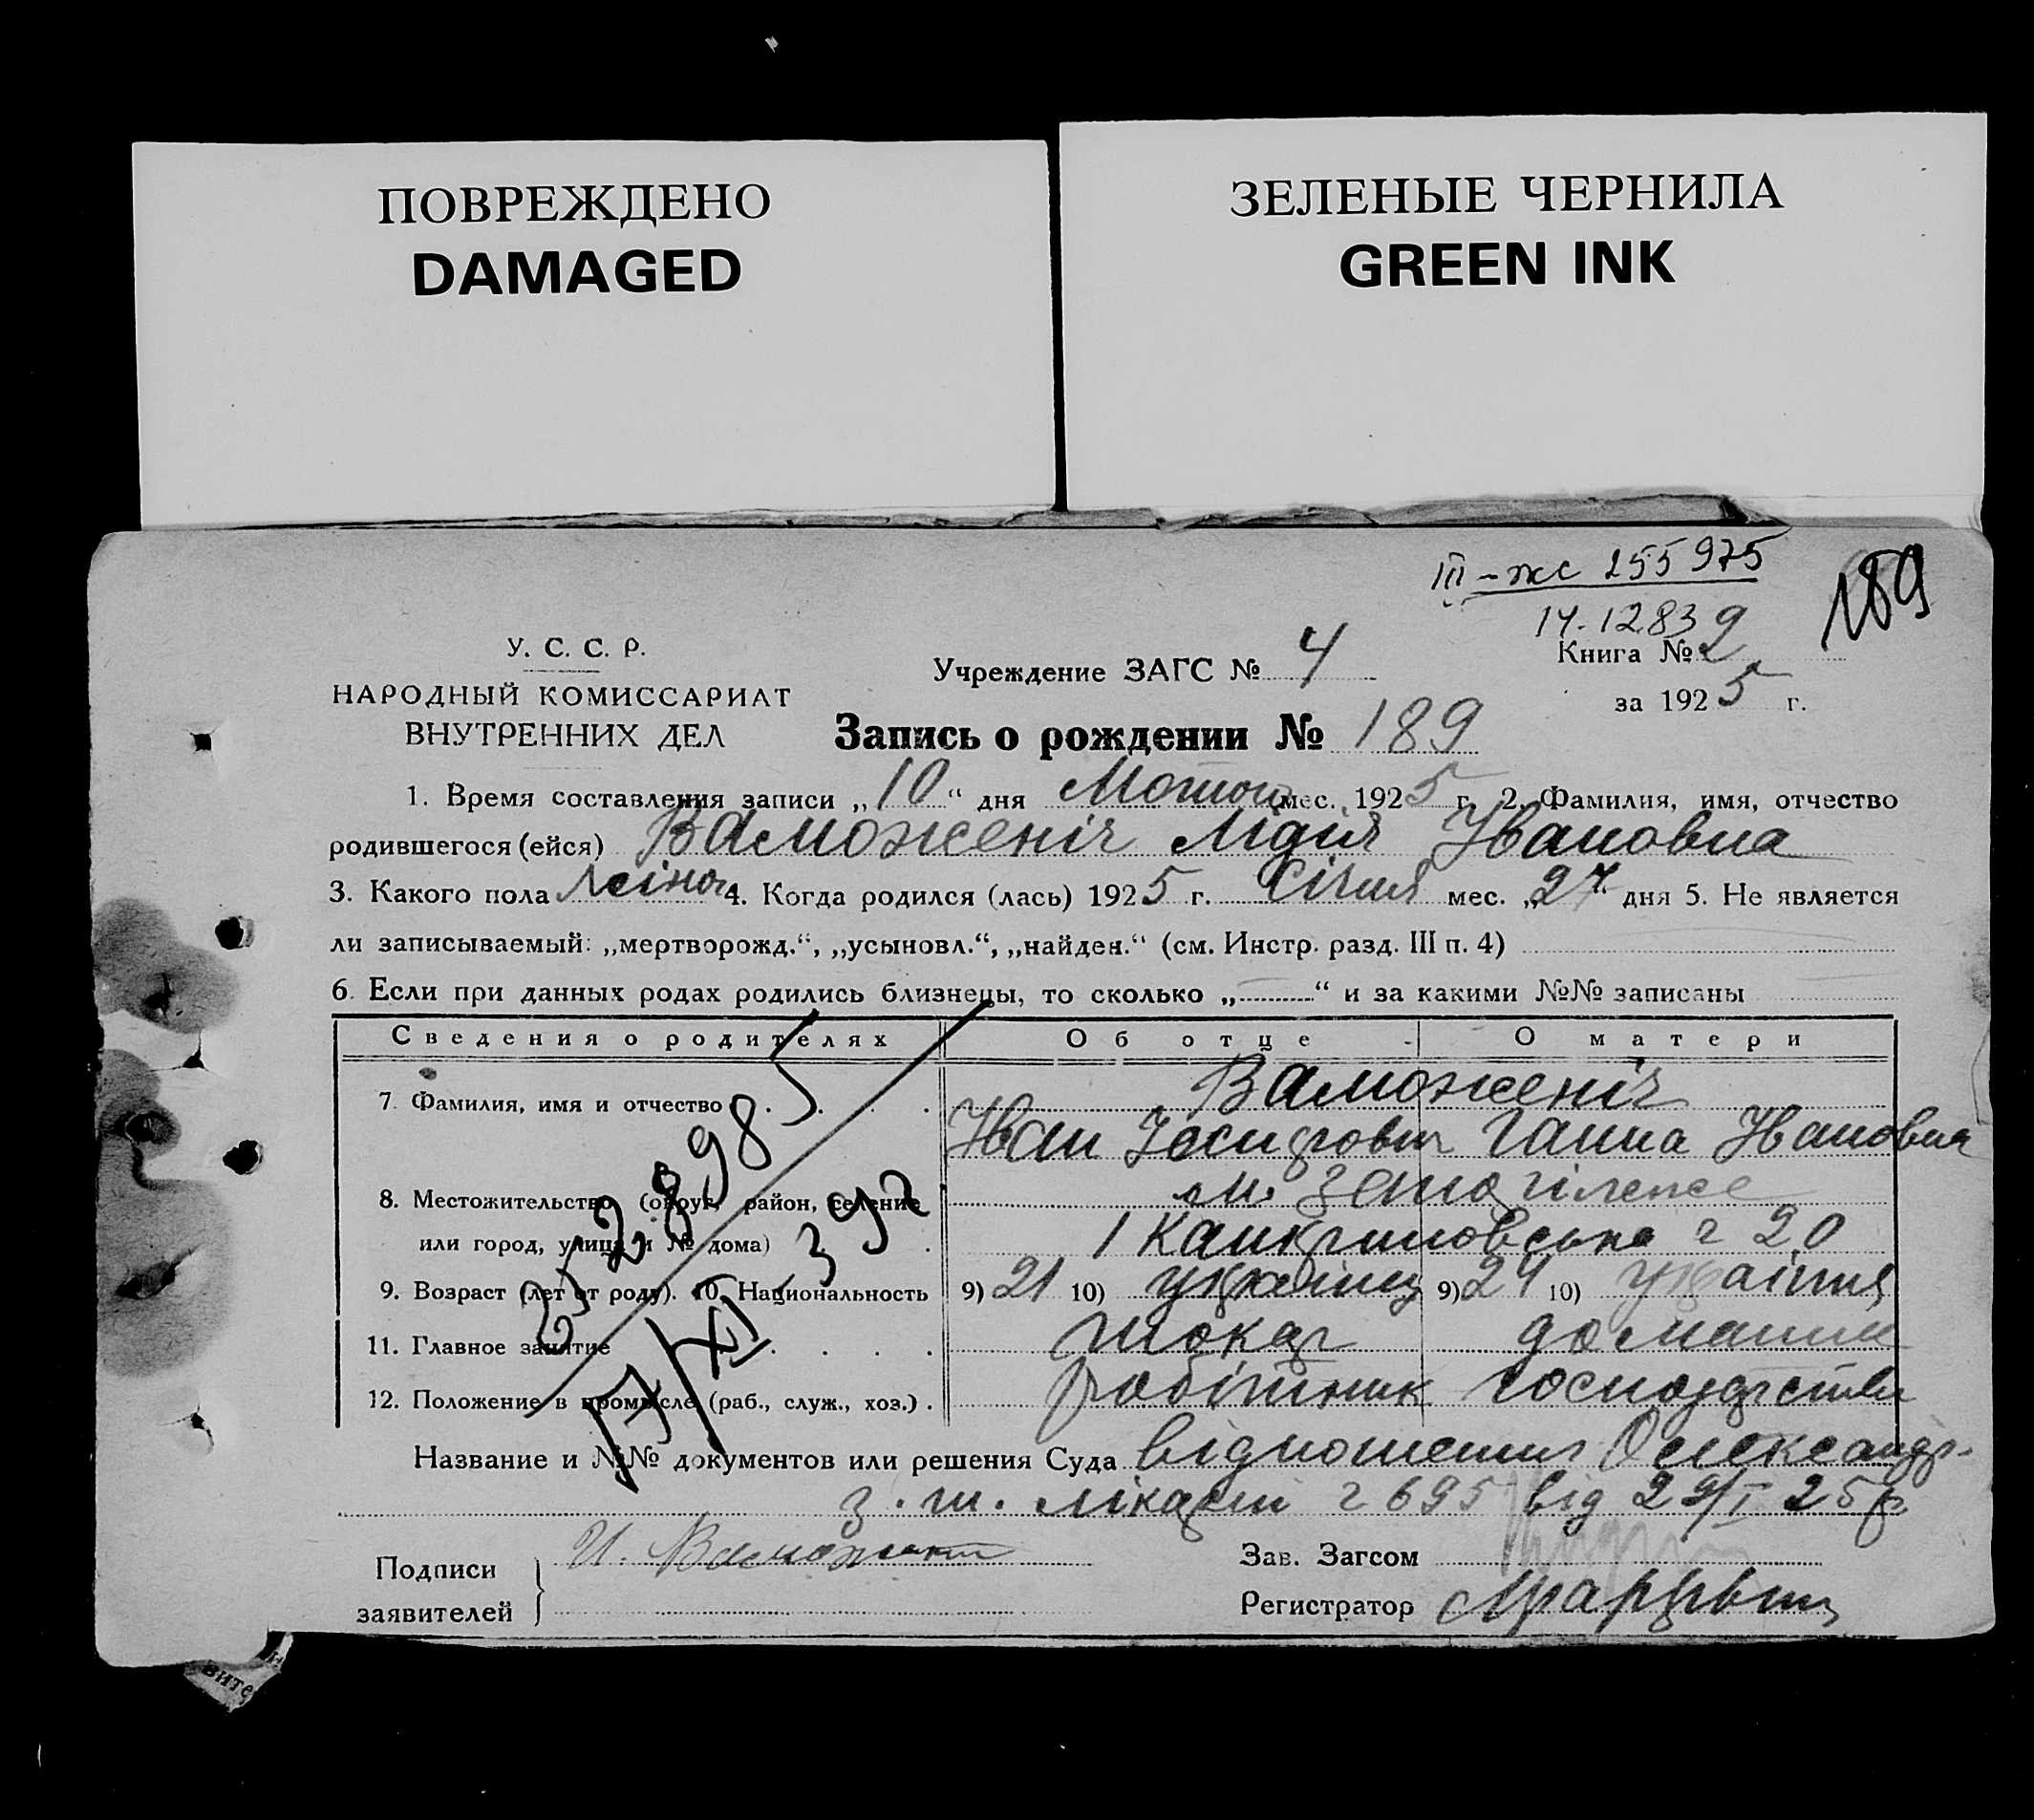 ПОВРЕЖДЕНО
DAMAGED
ЗЕЛЕНЫЕ ЧЕРНИЛА
GREEN INK
III-жс 255975
14.12.83
189
У. С. С. Р.
НАРОДНЫЙ КОМИССАРИАТ
ВНУТРЕННИХ ДЕЛ
Учреждение ЗАГС № 4
Книга № 2
за 1925 г.
Запись о рождении № 189
1. Время составления записи „10“ дня мес. 1925 г. 2. Фамилия, имя, отчество
родившегося (ейся) Ваможеніч Лідія Івановна
3. Какого пола жіноч. 4. Когда родился (лась) 1925 г. Січня мес. „27“ дня 5. Не является
ли записываемый: „мертворожд.“, „усыновл.“, „найден.“ (см. Инстр. разд. III п. 4)
6. Если при данных родах родились близнецы, то сколько „—“ и за какими №№ записаны
Сведения о родителях Об отце О матери
7. Фамилия, имя и отчество Ваможеніч
Іван Ганна Івановна
8. Местожительство (округ, район, селение м.
или город, улица и № дома) ч 20
9. Возраст (лет от роду). 10. Национальность 9) 21 10) українец 9) 24 10)
11. Главное занятие токар домашне
12. Положение в промысле (раб., служ., хоз.) робітник господарство
Название и №№ документов или решения Суда відношення Олександр.
лікарні ч 695 від 29/I 25 р.
Подписи
заявителей
И.
Зав. Загсом
Регистратор